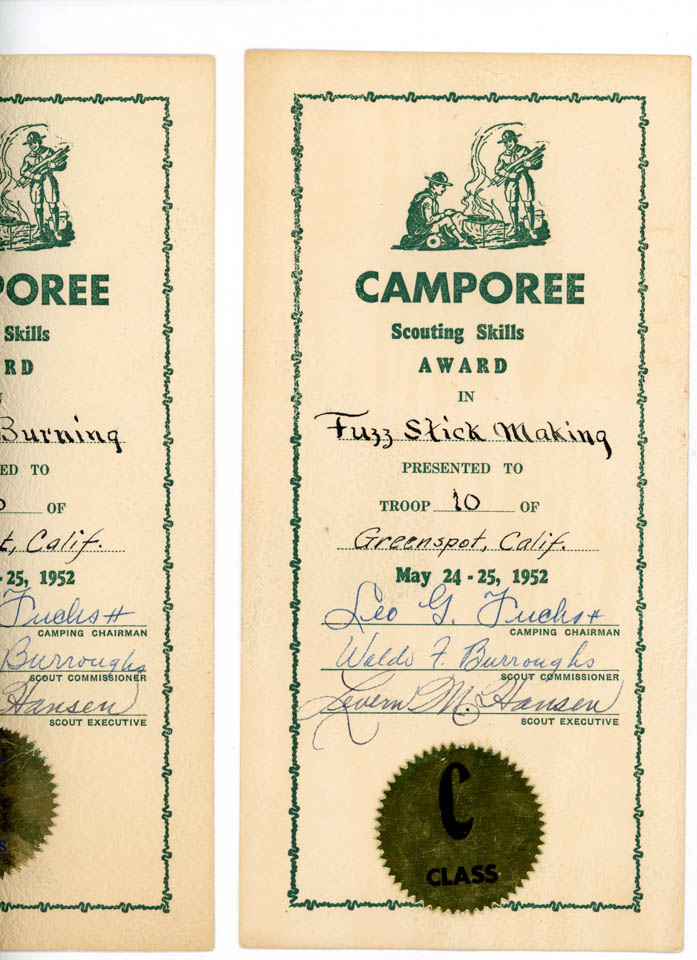 POREE
Skills
RD
Burning
ED TO
OF
t, Calif.
-25, 1952
Fuchs
CAMPING CHAIRMAN
Burroughs
SCOUT COMMISSIONER
Hansen
SCOUT EXECUTIVE
CAMPOREE
Scouting Skills
AWARD
IN
Fuzz Stick Making
PRESENTED TO
TROOP 10 OF
Greenspot, Calif.
May 24-25, 1952
Leo G. Fuchs
CAMPING CHAIRMAN
Waldo F. Burroughs
SCOUT COMMISSIONER
Levern M. Hansen
SCOUT EXECUTIVE
C
CLASS